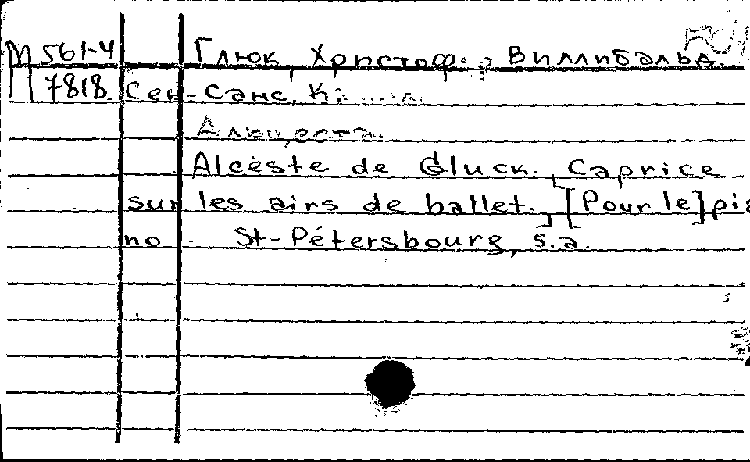 М 561-4 Глюк, Христоф. Виллибальд.
7818 Сен-Санс, К.
Альцеста.
Alceste de Gluck. Caprice
sur les airs de ballet. [Pour le] pia
no St-Pétersbourg, s.a.